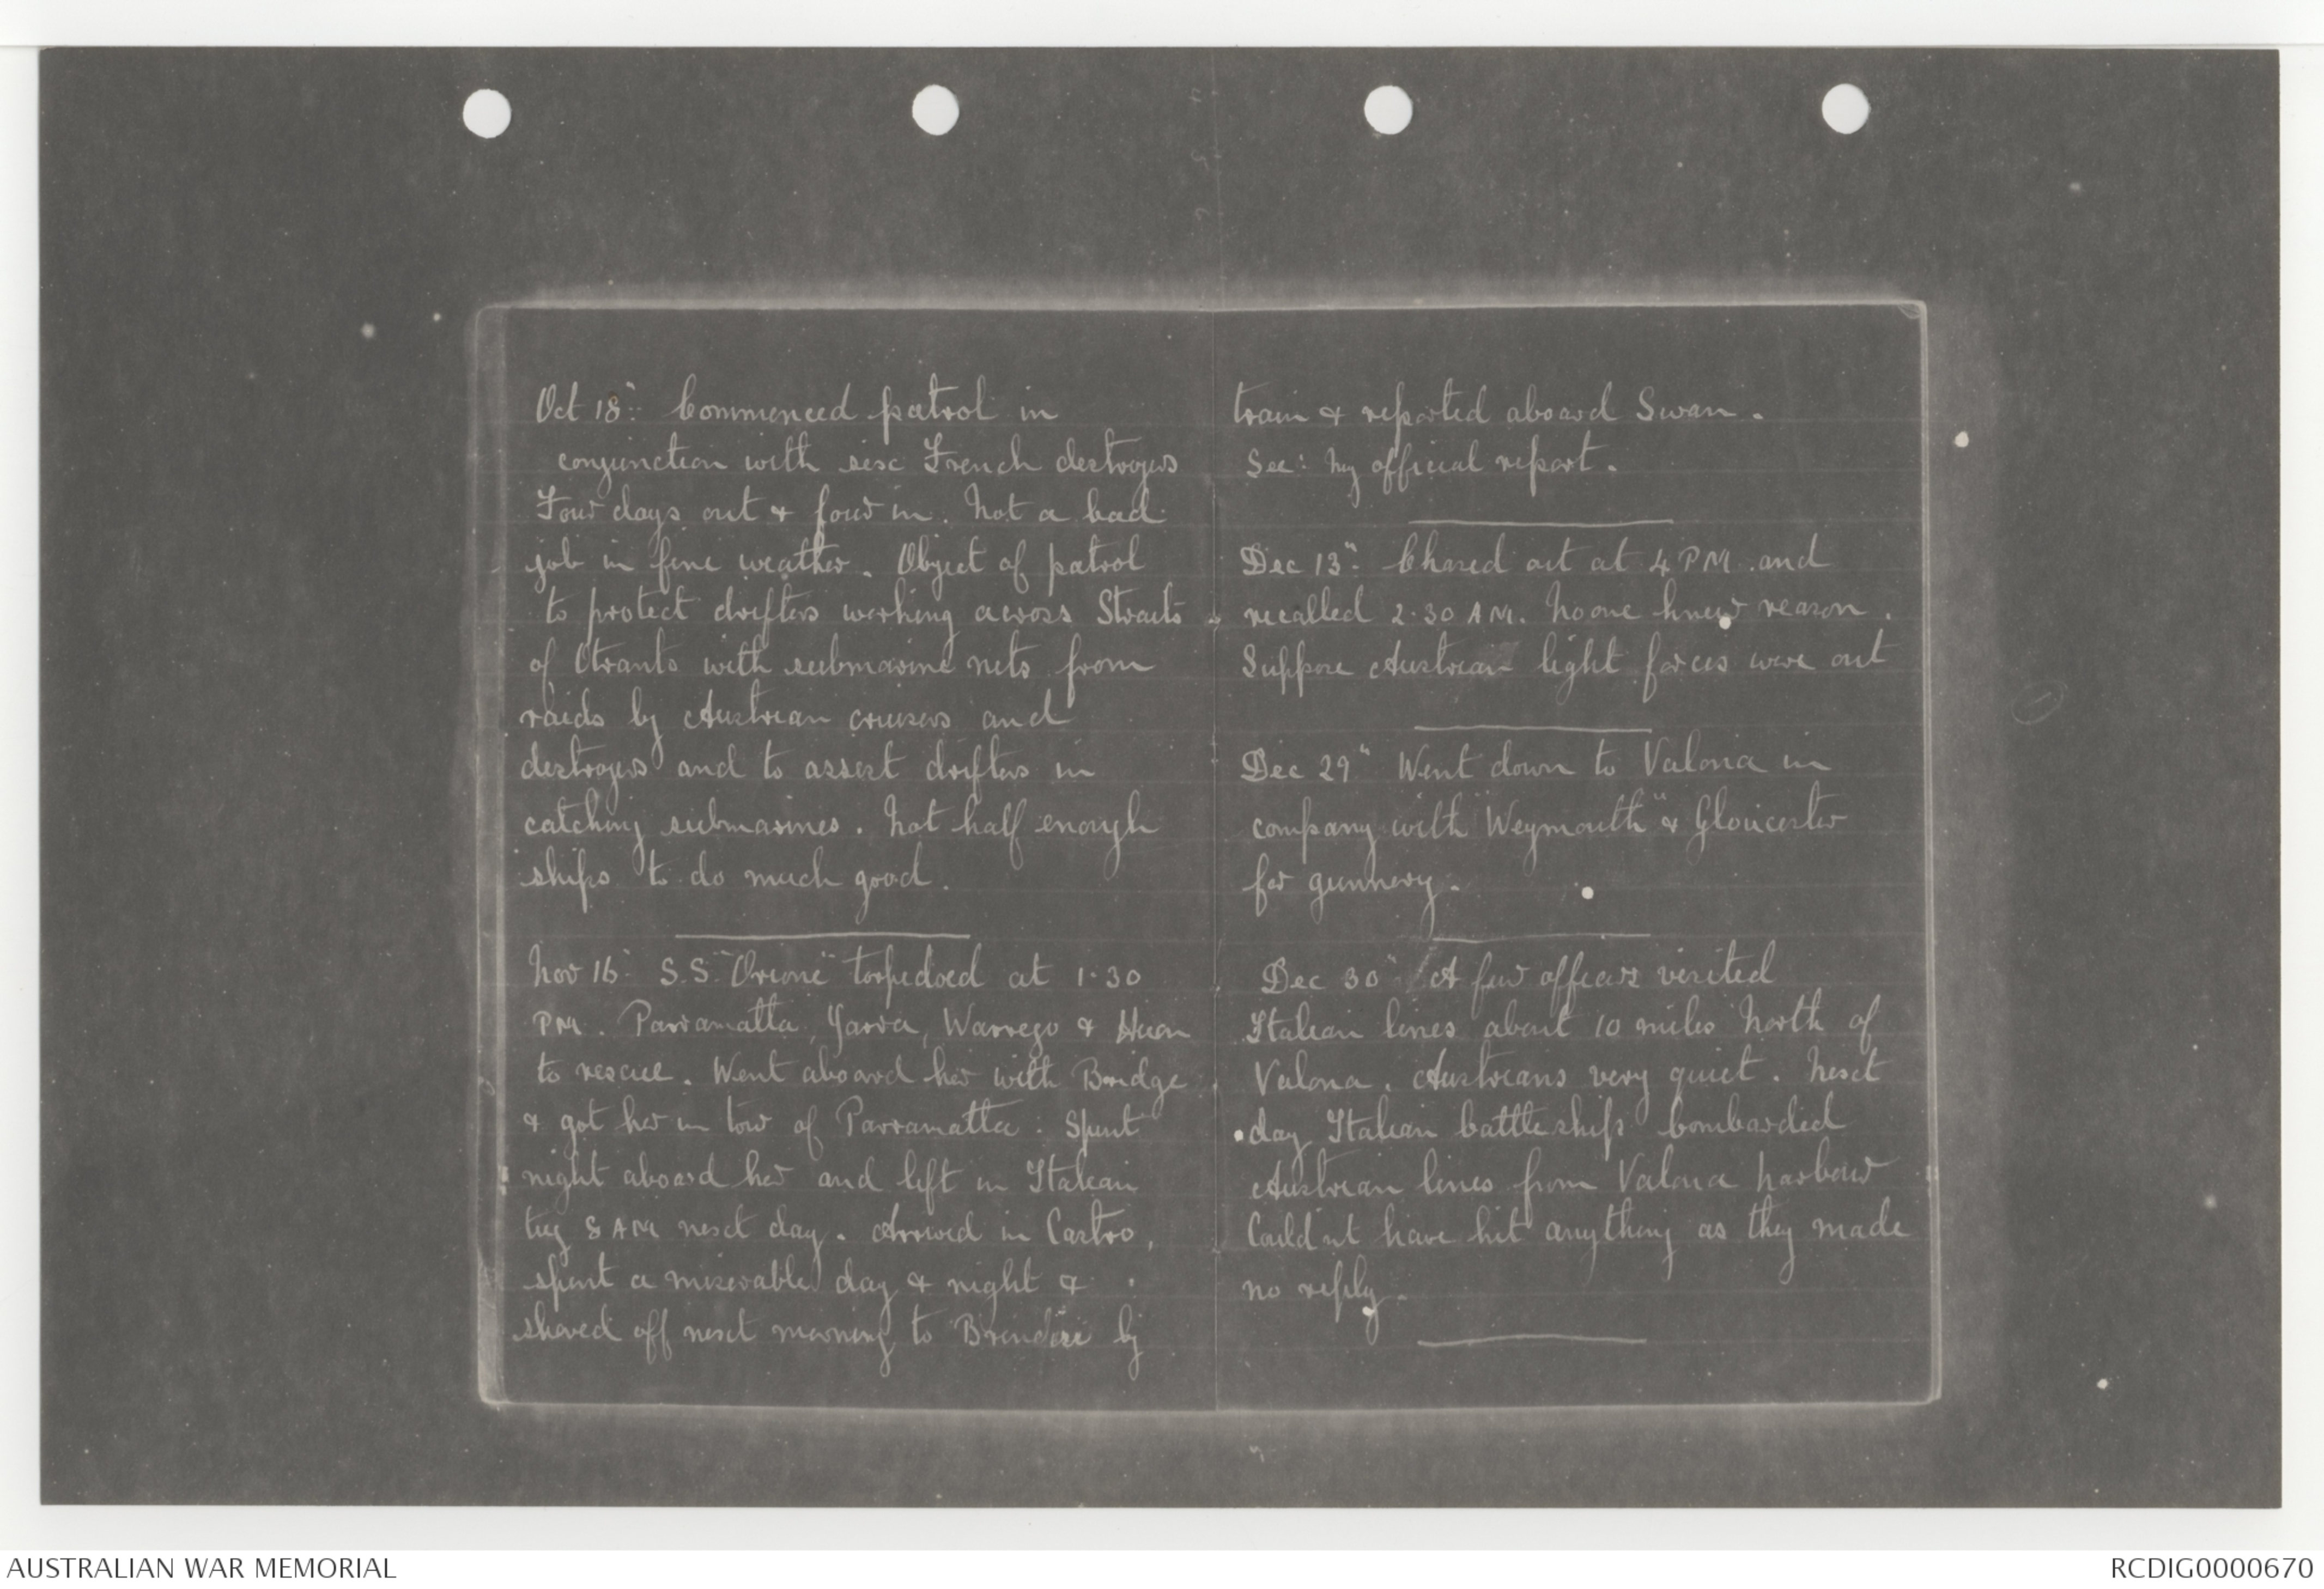 Oct 18" Commenced patrol in
conjunction with six French destroyers
Four days out & four in. Not a bad
job in fine weather. Object of patrol
to protect drifters working across Straits
of Otranto with submarine nets from
raids by Austrian cruisers and
destroyers and to assist drifters in
catching submarines. Not half enough
ships to do much good.
Nov 16" S.S. "Orione" torpedoed at 1.30
PM. Parramatta, Yarra, Warrego & Huon
to rescue. Went aboard her with Bridge
& got her in tow of Parramatta. Spent
night aboard her and left in Italian
tug 8 AM next day. Arrived in Castro,
spent a miserable day & night &
shoved off next morning to Brindisi by
train & reported aboard Swan.
See: My official report.
Dec 13" Chased out at 4 PM and
recalled 2.30 AM. No one knew reason.
Suppose Austrian light forces were out
Dec 29" Went down to Valona in
company with "Weymouth" & Gloucester
for gunnery.
Dec 30" A few officers visited
Italian lines about 10 miles North of
Valona. Austrians very quiet. Next
day Italian battleship bombarded
Austrian lines from Valona harbour
Couldnt have hit anything as they made
no reply.
AUSTRALIAN WAR MEMORIAL
RCDIG0000670